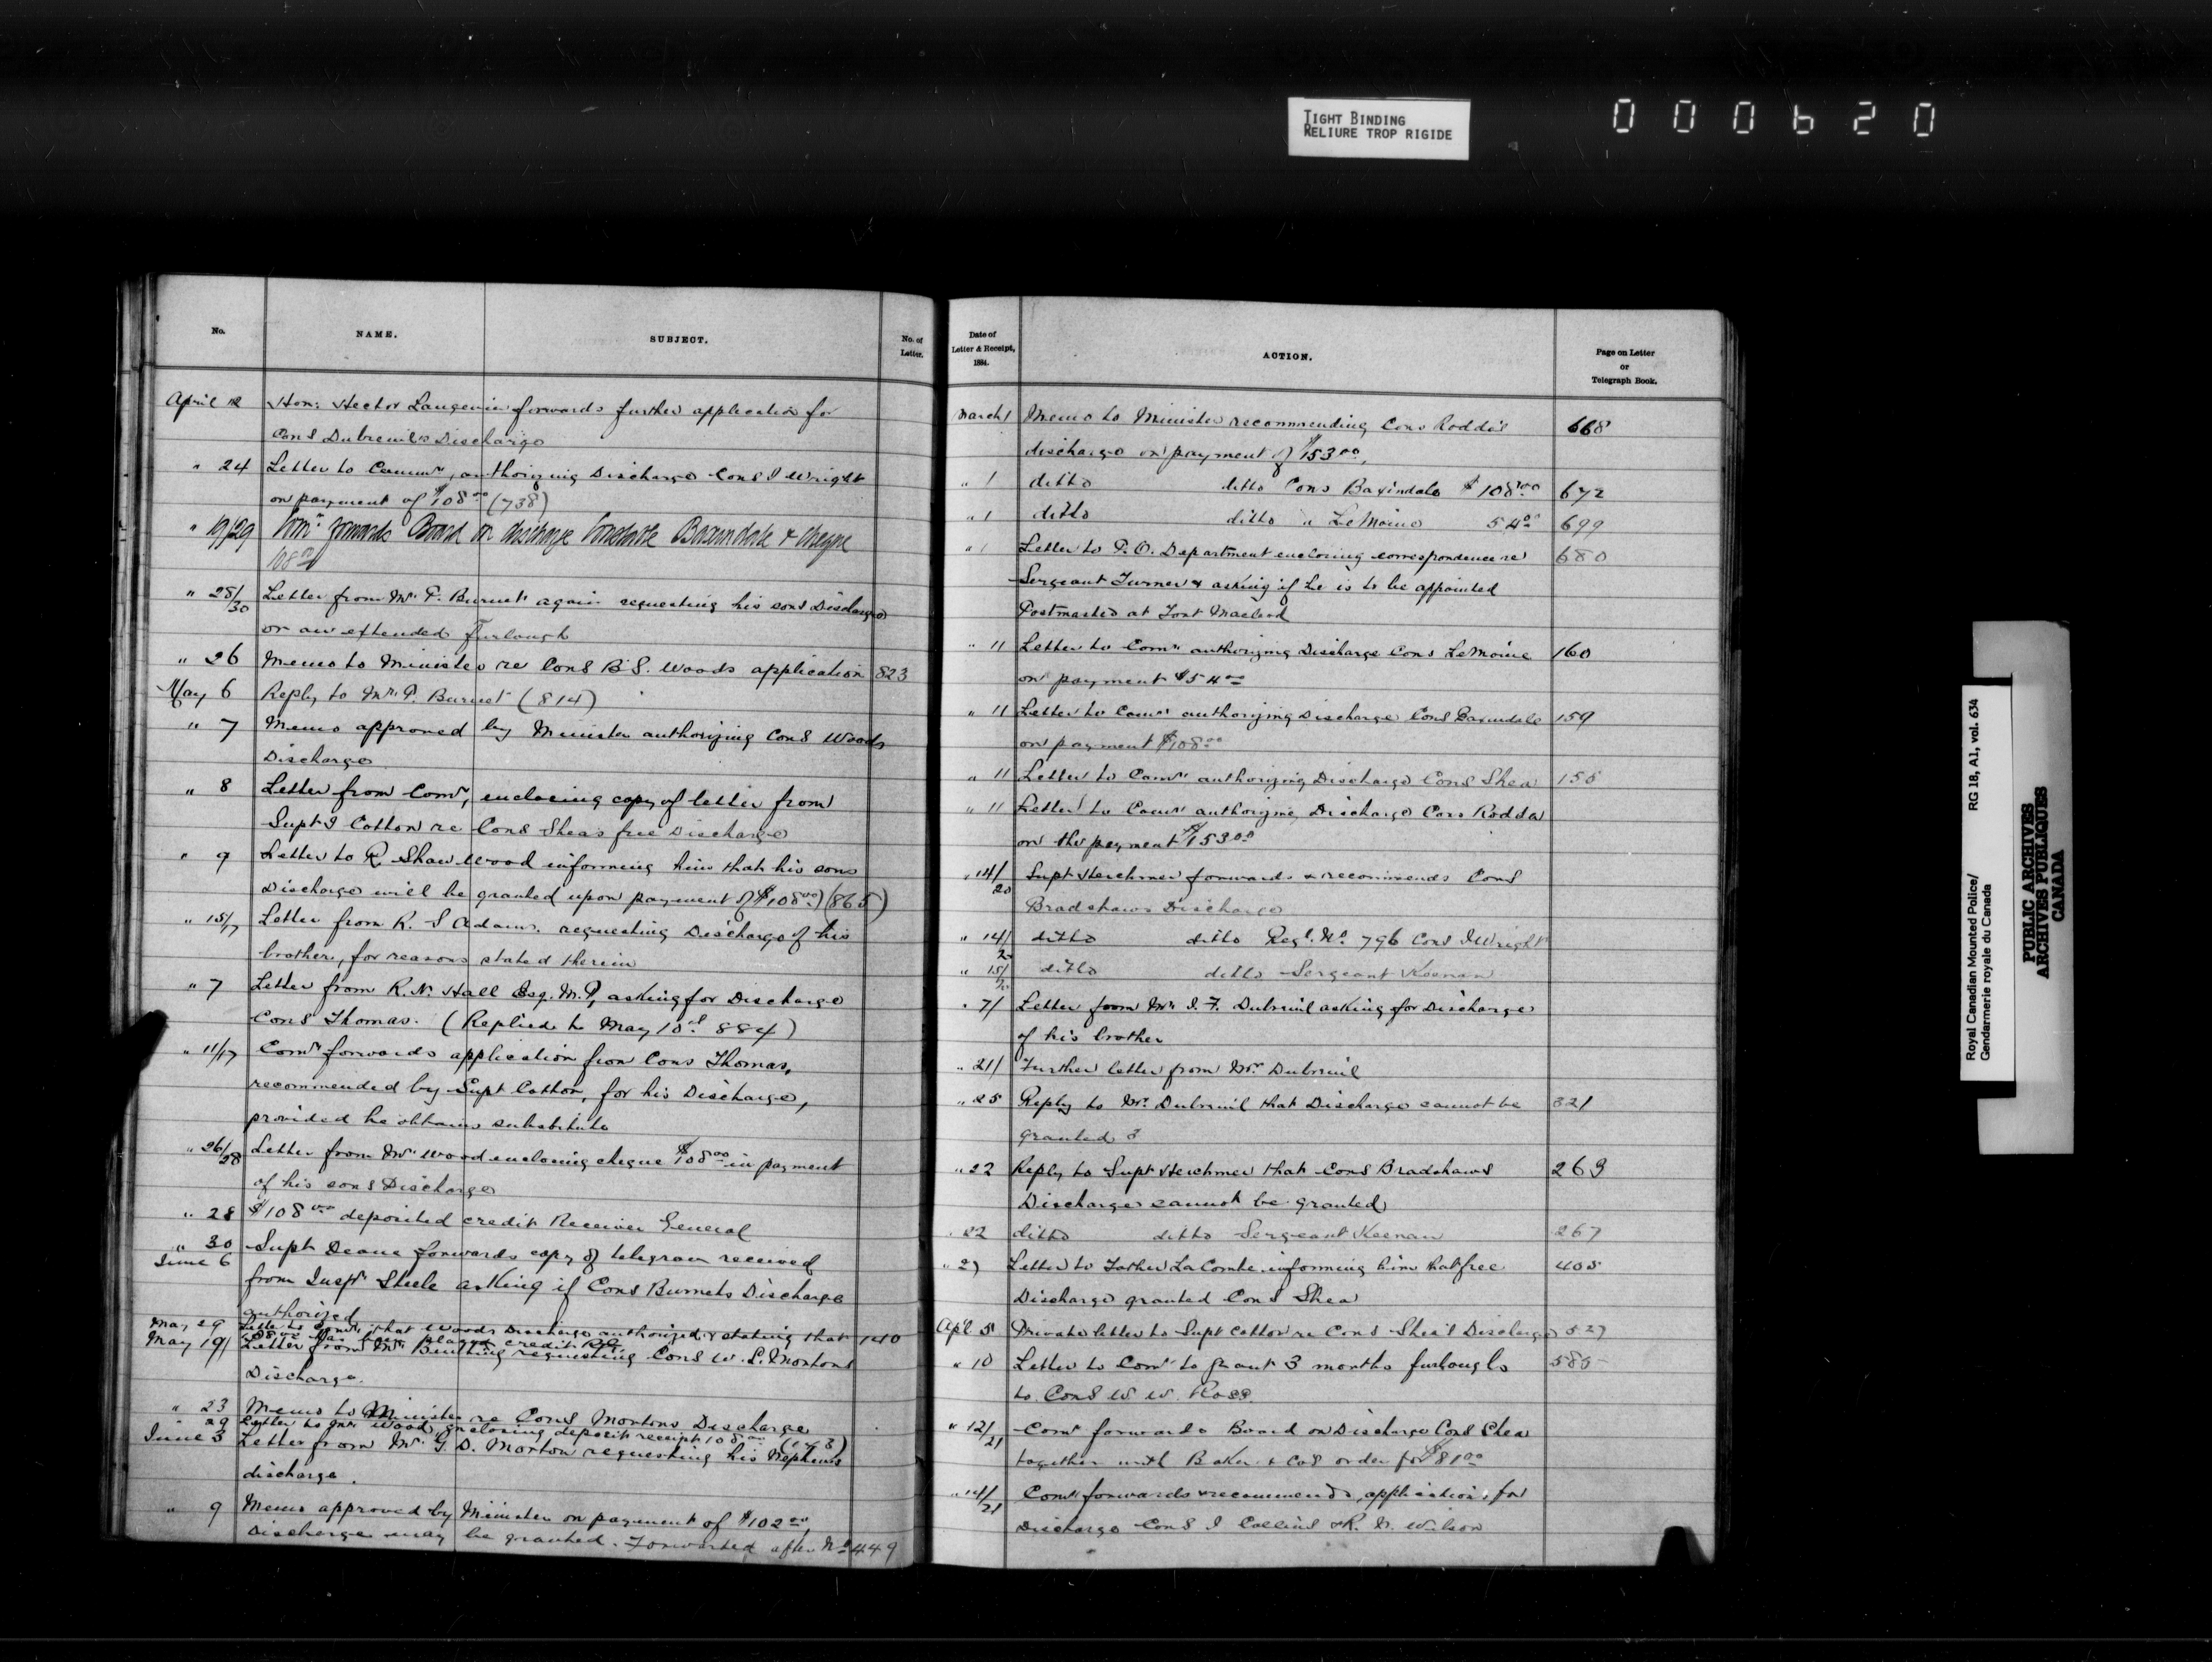 TIGHT BINDING
RELIURE TROP RIGIDE
000620
No.
NAME.
SUBJECT.
No. of
Letter.
April 12 Hon. Hector Langevin forwards further application for
Cons Dubreuil's Discharge
" 24 Letter to Commr, authorizing Discharge Cons J Wright
on payment of $108.00 (738)
" 19/29 Comr forwards Board on discharge Constable Baxendale & cheque
108.00
" 28/30 Letter from Mr P. Burnet again requesting his sons Discharge
or an extended Furlough
" 26 Memo to Minister re Cons B.S. Woods application 823
May 6 Reply to Mr P. Burnet (814)
" 7 Memo approved by Minister authorizing Cons Woods
Discharge
" 8 Letter from Comr, enclosing copy of letter from
Supt J Cotton re Cons Sheas free Discharge
" 9 Letter to R Shaw Wood informing him that his sons
Discharge will be granted upon payment of $108.00) (865)
" 15/17 Letter from K. S Adams. requesting Discharge of his
brother, for reasons stated therein
" 7 Letter from R. N. Hall Esq. M.P, asking for Discharge
Cons Thomas. (Replied to May 10th 884)
" 11/17 Comr forwards application from Cons Thomas,
recommended by Supt Cotton, for his Discharge,
provided he obtains substitute
" 26/28 Letter from Mr Wood enclosing cheque $108.00 in payment
of his sons Discharge
" 28 $108.00 deposited credit Receiver General
" 30
June 6 Supt Deane forwards copy of telegram received
from Inspr Steele asking if Cons Burnets Discharge
authorized
May 29 Letter to Comr, that Woods Discharge authorized & stating that 140
108.00 has been placed credit R.G.
May 19/ Letter from Mr Bunting requesting Cons W. L. Mortons
Discharge.
" 23 Memo to Minister re Cons Mortons Discharge
" 29 Letter to Mr Wood, enclosing deposit receipt 108.00
June 3 Letter from Mr G. D. Morton requesting his Nephews
discharge.
" 9 Memo approved by Minister on payment of $102.00,
Discharge may be granted. Forwarded after No 449
Date of
Letter & Receipt,
1884.
ACTION.
Page on Letter
or
Telegraph Book.
March 1 Memo to Minister recommending Cons Rodda's 668
discharge on payment of $153.00,
" 1 ditto ditto Cons Baxindale $108.00 672
" 1 ditto ditto " LeMoine 54.00 699
" 1 Letter to P.O. Department enclosing correspondence re 680
Sergeant Turner & asking if he is to be appointed
Postmaster at Fort Macleod
" 11 Letter to Comr authorizing Discharge Cons LeMoine 160
on payment $54.00
" 11 Letter to Comr authorizing Discharge Cons Baxindale 159
on payment $108.00
" 11 Letter to Comr authorizing Discharge Cons Shea 155
" 11 Letter to Comr authorizing Discharge Cons Rodda
on the payment $153.00
" 14/20 Supt Herchmer forwards & recommends Cons
Bradshaws Discharge
" 14/ ditto ditto Regl. No. 796 Cons J Wright
" 15/ ditto ditto Sergeant Keenan
" 7/ Letter from Mr J. F. Dubreuil asking for Discharge
of his brother
" 21/ Further letter from Mr Dubreuil
" 25 Reply to Mr. Dubreuil that Discharge cannot be 321
granted
" 22 Reply to Supt Herchmer that Cons Bradshaws 263
Discharge cannot be granted
" 22 ditto ditto Sergeant Keenan 267
" 27 Letter to Father LaCombe informing him that free 405
Discharge granted Cons Shea
Apl 5 Private letter to Supt Cotton re Cons Shea's Discharge 527
" 10 Letter to Comr to grant 3 months furlough 585
to Cons W. W. Ross.
" 12/21 Comr forwards Board on Discharge Cons Shea
together with Baker & Cos order for $81.00
" 14/21 Comr forwards & recommends, application, for
Discharge Cons J Collins & R. N. Wilson
Royal Canadian Mounted Police/ RG 18, A1, vol. 634
Gendarmerie royale du Canada
PUBLIC ARCHIVES
ARCHIVES PUBLIQUES
CANADA